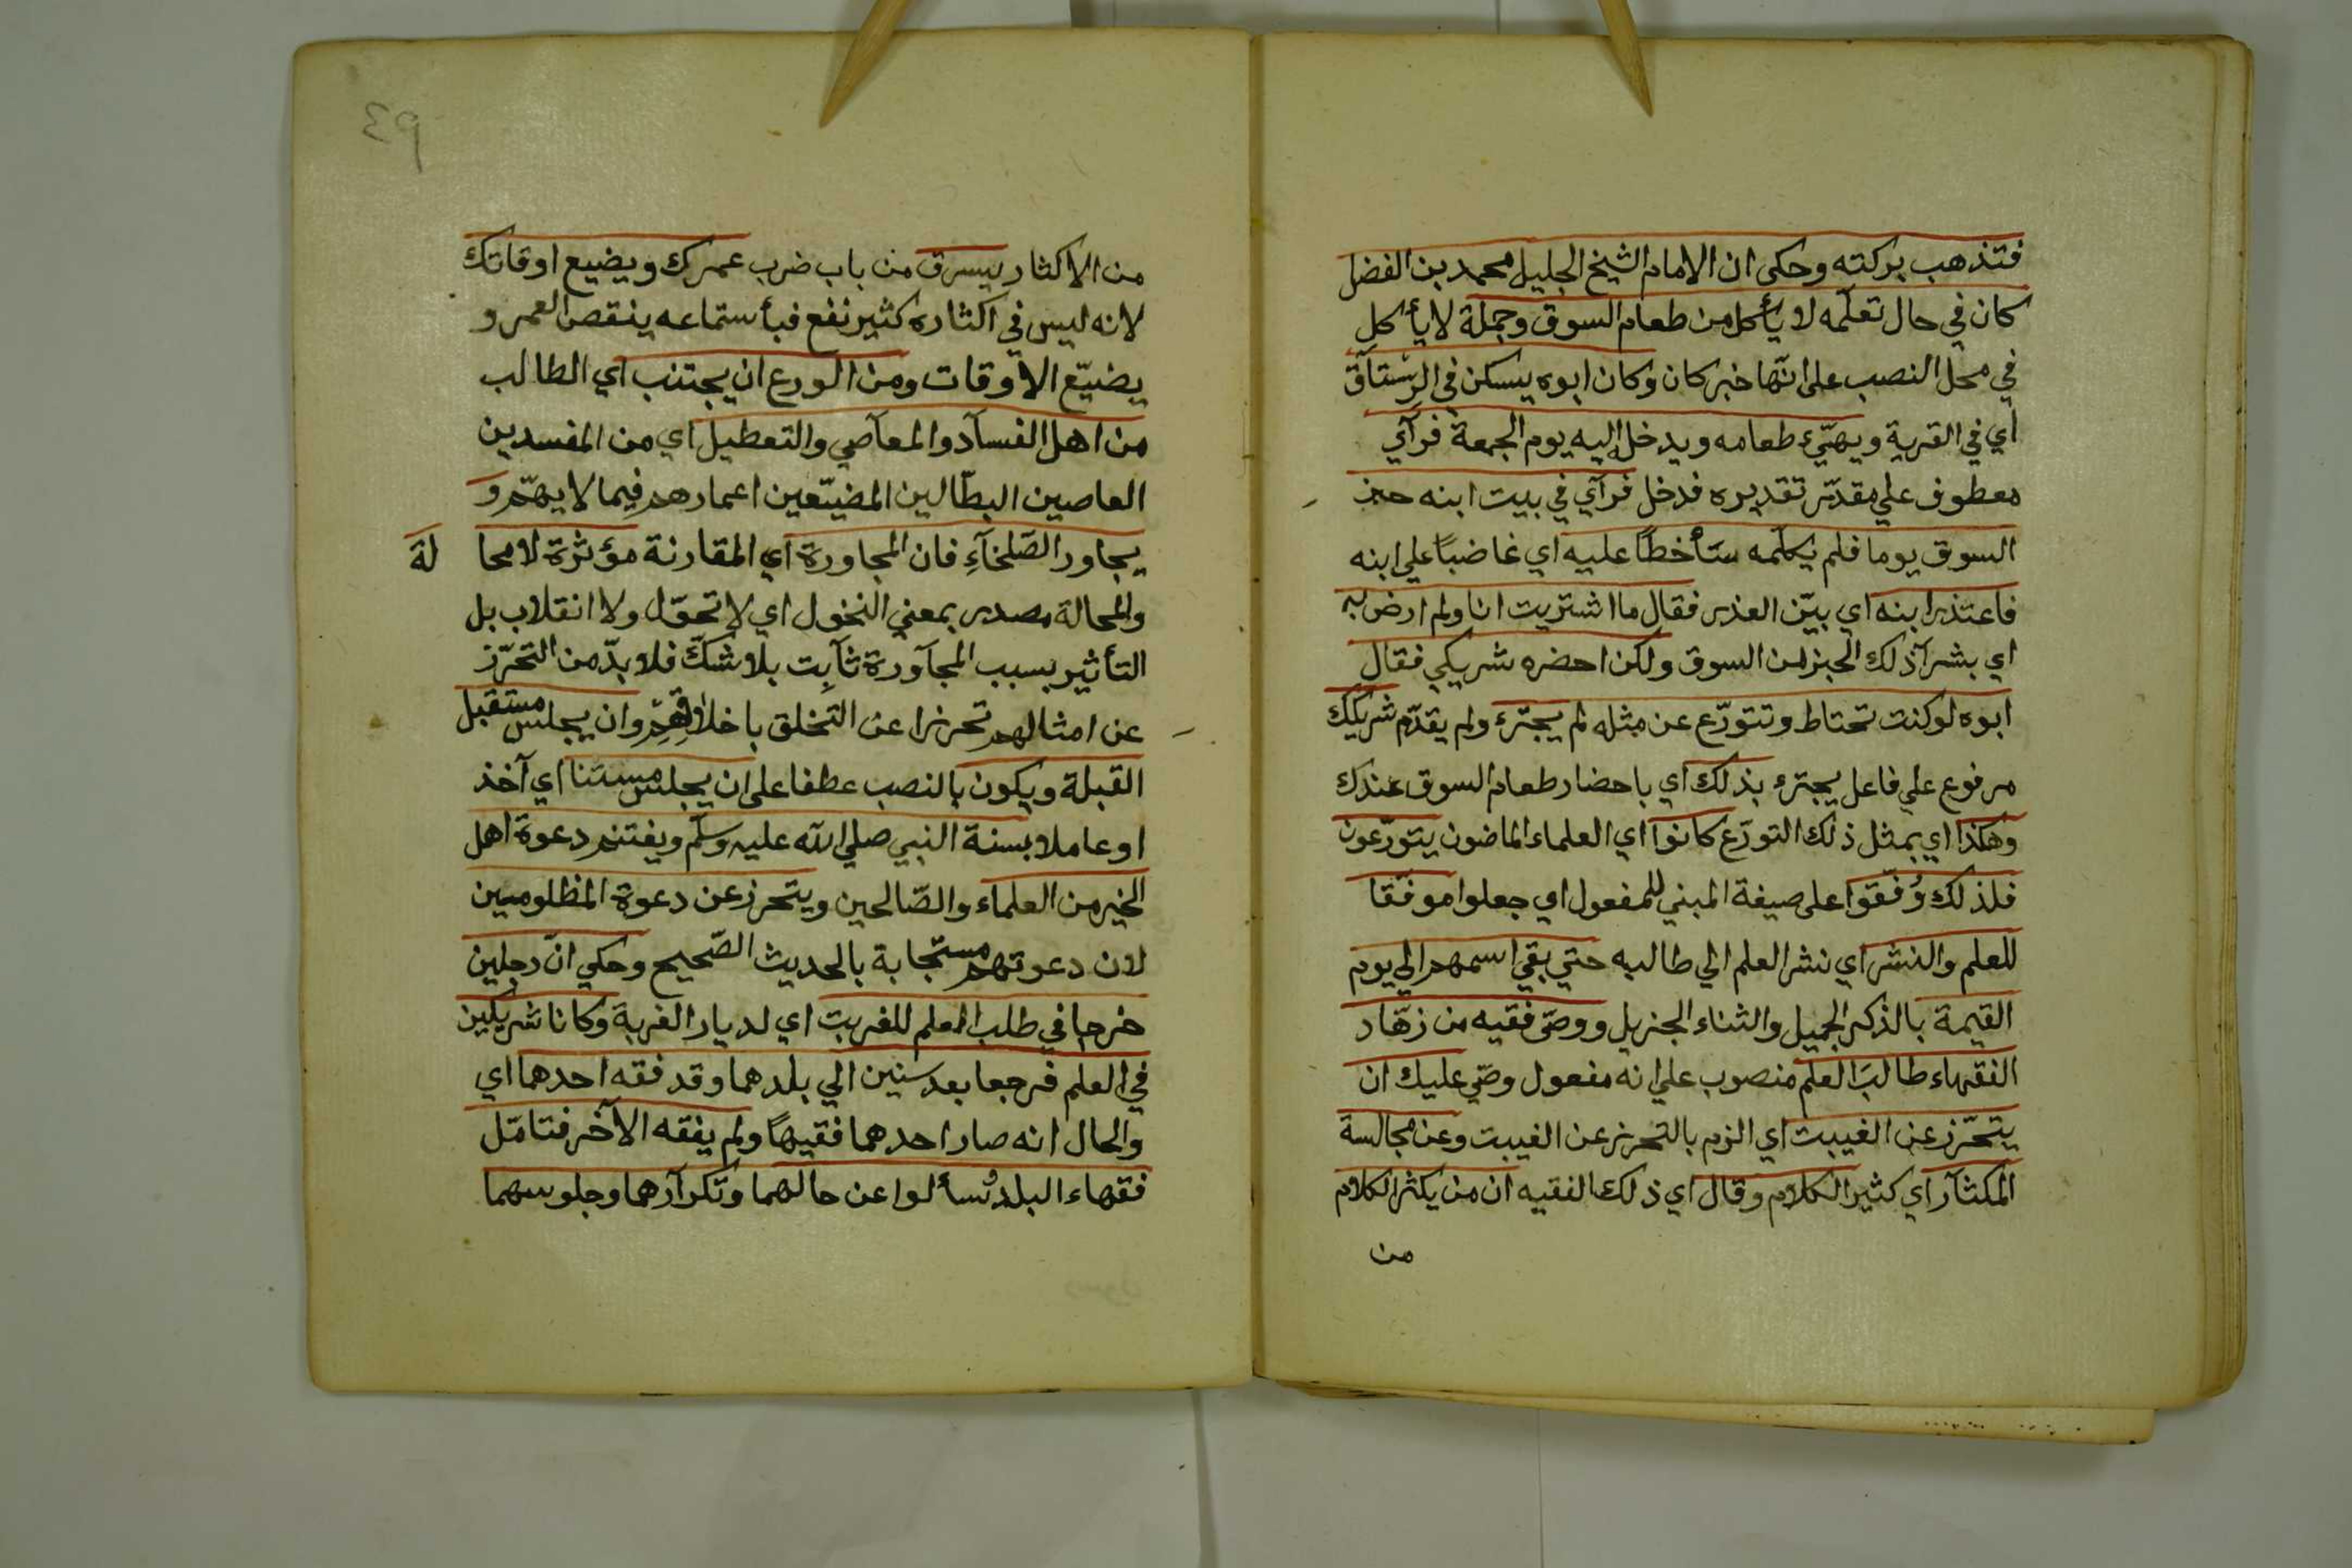 فتذهب بركته وحكى ان الامام الشيخ الجليل محمد بن الفضل
كان في حال تعلّمه لا يأكل من طعام السوق وجملة لا يأكل
في محل النصب على انّها خبر كان وكان ابوه يسكن في الرستاق
اي في القرية ويهيّئ طعامه ويدخل اليه يوم الجمعة فرآي
معطوف علي مقدّر تقديره فدخل فرآي في بيت ابنه خبز
السوق يوما فلم يكلّمه ساخطًا عليه اي غاضبًا علي ابنه
فاعتذر ابنه اي بيّن العذر فقال ما اشتريت انا ولم ارض به
اي بشرآ ذلك الخبز من السوق ولكن احضره شريكي فقال
ابوه لو كنت تحتاط وتتورّع عن مثله لم يجترء ولم يقدّم شريكك
مرفوع علي فاعل يجترء بذلك اي باحضار طعام السوق عندك
وهكذا اي بمثل ذلك التورّع كانوا اي العلماء الماضون يتورّعون
فلذلك وُفّقوا على صيغة المبني للمفعول اي جعلوا موفّقا
للعلم والنشر اي نشر العلم الي طالبه حتي بقي اسمهم الي يوم
القيمة بالذكر الجميل والثناء الجزيل ووصّى فقيه من زهّاد
الفقهاء طالبَ العلم منصوب علي انه مفعول وصّي عليك ان
يتحرّز عن الغيبت اي الزم بالتحرز عن الغيبت وعن مجالسة
المكثار اي كثير الكلام وقال اي ذلك الفقيه ان من يكثر الكلام
من
39
من الاكثار يسرق من باب ضرب عمرك ويضيع اوقاتك
لانه ليس في اكثاره كثير نفع فبأستماعه ينقص العمر و
يضيّع الاوقات ومن الورع ان يجتنب اي الطالب
من اهل الفسآد والمعآصي والتعطيل اي من المفسدين
العاصين البطّالين المضيّعين اعمارهم فيما لا يهمّ و
يجاور الصّلحآءِ فان المجاورة اي المقارنة مؤثرة لا محا لة
والمحالة مصدر بمعني التحول اي لا تحوّل ولا انقلاب بل
التأثير بسبب المجآورة ثآبت بلا شكّ فلا بدّ من التحرّز
عن امثالهم تحرزا عن التخلق باخلاقهم وان يجلس مستقبل
القبلة ويكون بالنصب عطفا على ان يجلس مستنا اي آخذ
او عاملا بسنة النبي صلي الله عليه وسلّم ويغتنم دعوة اهل
الخير من العلماء والصّالحين ويتحرز عن دعوة المظلومين
لان دعوتهم مستجابة بالحديث الصّحيح وحكي انّ رجلين
خرجا في طلب العلم للغربت اي لديار الغربة وكانا شريكين
في العلم فرجعا بعد سنين الي بلدهما وقد فقه احدهما اي
والحال انه صار احدهما فقيهًا ولم يفقه الآخر فتامّل
فقهاء البلد وُسألوا عن حالهما وتكرآرهما وجلوسهما